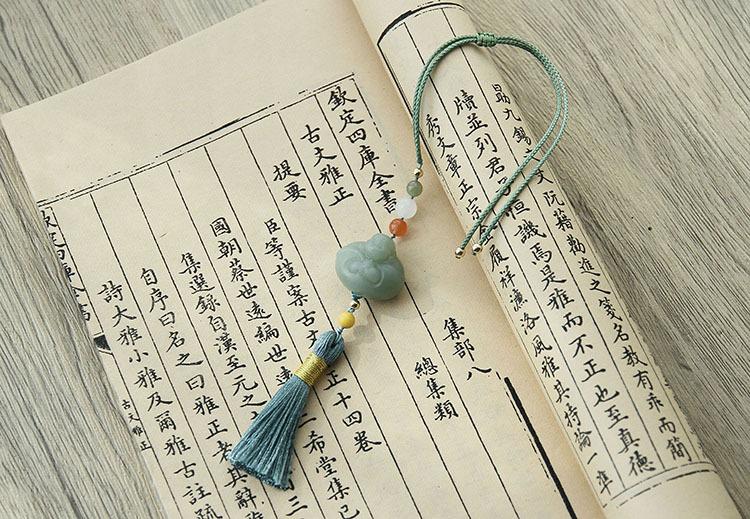 勗九錫文阮籍勸進之箋名教有乖而簡
牘並列君子恒譏焉是雅而不正也至真德
秀文章正宗 履祥濂洛風雅其持論一準
欽定四庫全書 集部八
古文雅正 總集類
提要
臣等謹案古文 正十四卷
國朝蔡世遠編世遠 二希堂集已
集選錄自漢至元之
自序曰名之曰雅正者其辭
詩大雅小雅及爾雅古註疏
古文雅正